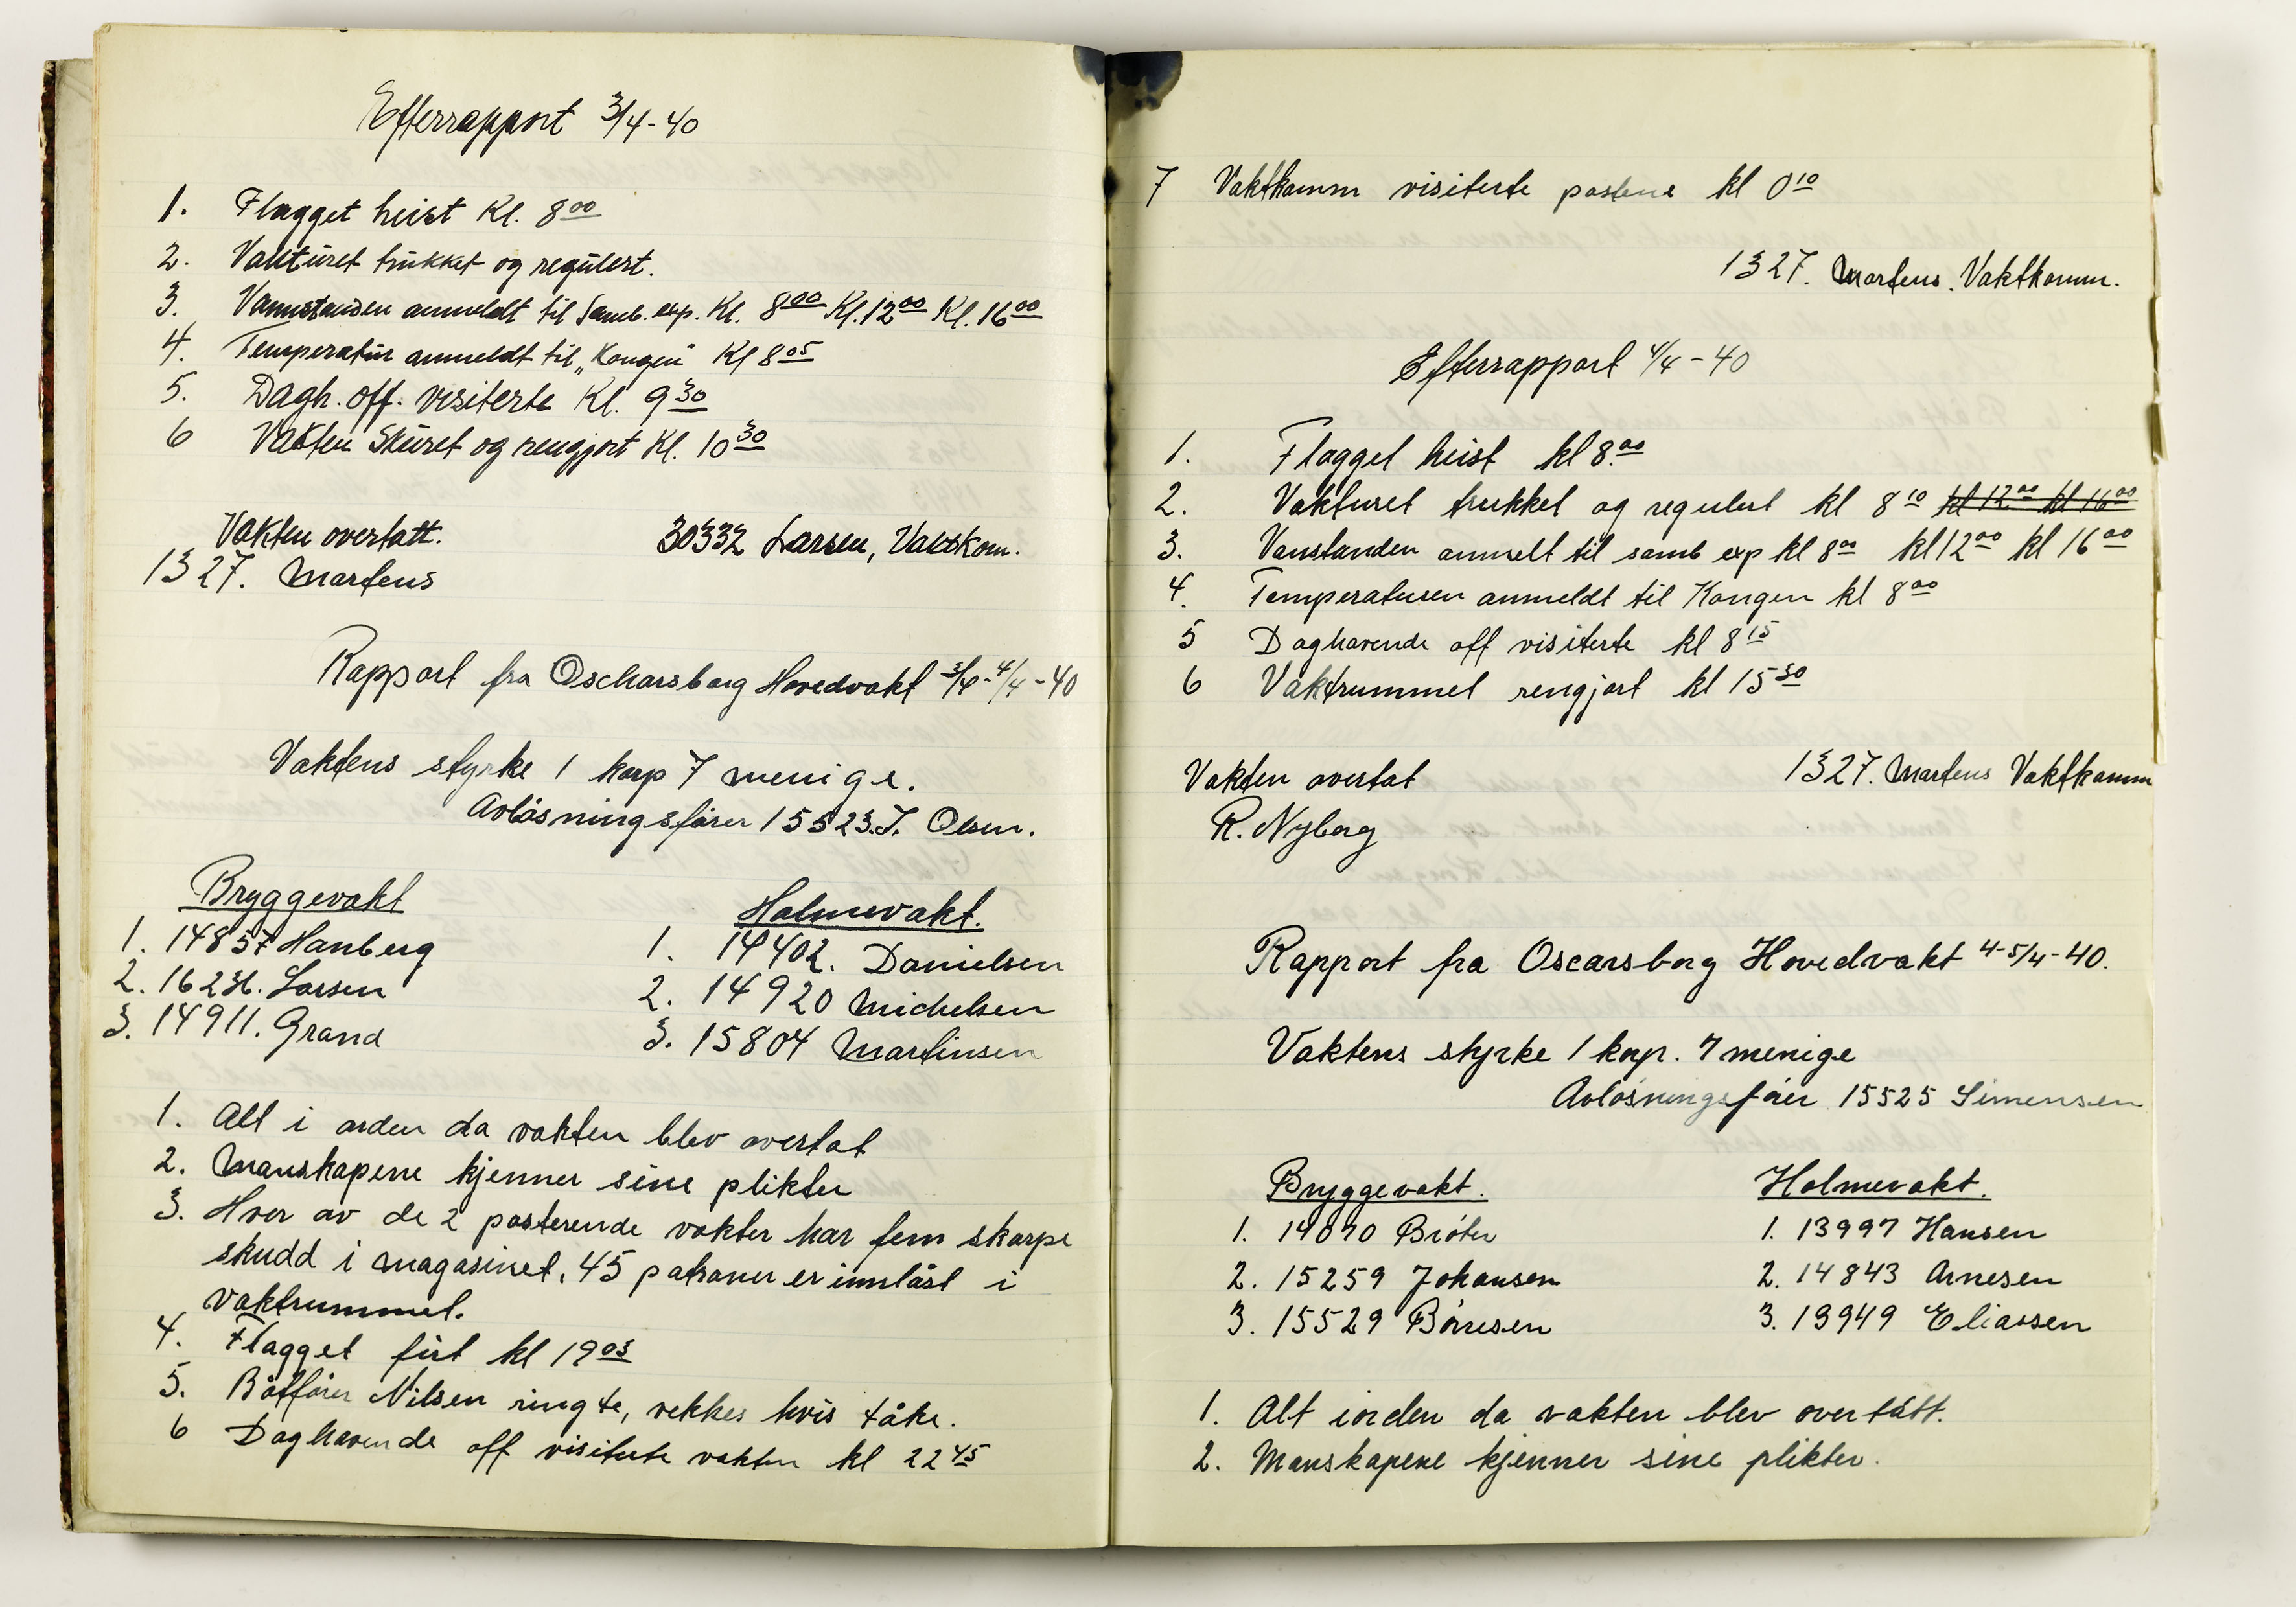 Efterrapport 3/4-40
1. Flagget heist Kl. 8 00
2. Vakturet trukket og regulert.
3. Vannstanden anmeldt til Samb. exp. Kl. 8 00 Kl. 12 00 Kl. 16 00
4. Temperatur anmeldt til „Kongen" Kl 8 05
5. Dagh. off. visiterte Kl. 9 30
6 Vakten Skuret og rengjort Kl. 10 30
Vakten overtatt. 30332 Larsen, Vaktkom.
1327. Martens
Rapport fra Oscharsborg Hovedvakt 3/4-4/4-40
Vaktens styrke 1 korp 7 menige.
Avløsningsfører 15523.J. Olsen.
Bryggevakt
Holmevakt.
1. 14857 Hanberg
2. 162 H. Larsen
3. 14911. Grand
1. 14402. Danielsen
2. 14920 Michelsen
3. 15804 Martinsen
1. Alt i orden da vakten blev overtat
2. Manskapene kjenner sine plikter
3. Hver av de 2 posterende vakter har fem skarpe
skudd i magasinet, 45 patroner er innlåst i
vaktrummet.
4. Flagget firt kl 19 03
5. Båtfører Nilsen ringte, vekkes hvis tåke.
6 Daghavende off visiterte vakten kl 22 45
7 Vaktkomm visiterte postene kl 0 10
1327. Martens. Vaktkomm.
Efterrapport 4/4-40
1. Flagget heist kl 8.00
2. Vakturet trukket og regulert kl 8 10 kl 12 00 kl 16 00
3. Vanstanden anmelt til samb exp kl 8 00 kl 12 00 kl 16 00
4. Temperaturen anmeldt til Kongen kl 8 00
5 Daghavende off visiterte kl 8 15
6 Vaktrummet rengjort kl 15 30
Vakten overtat 1327. Martens Vaktkomm
R. Nyborg
Rapport fra Oscarsborg Hovedvakt 4-5/4-40.
Vaktens styrke 1 korp. 7 menige
Avløsningsfører 15525 Simensen
Bryggevakt.
Holmevakt.
1. 14070 Bråten
2. 15259 Johansen
3. 15529 Børresen
1. 13997 Hansen
2. 14843 Arnesen
3. 13949 Eliassen
1. Alt iorden da vakten blev overtatt.
2. Manskapene kjenner sine plikter.